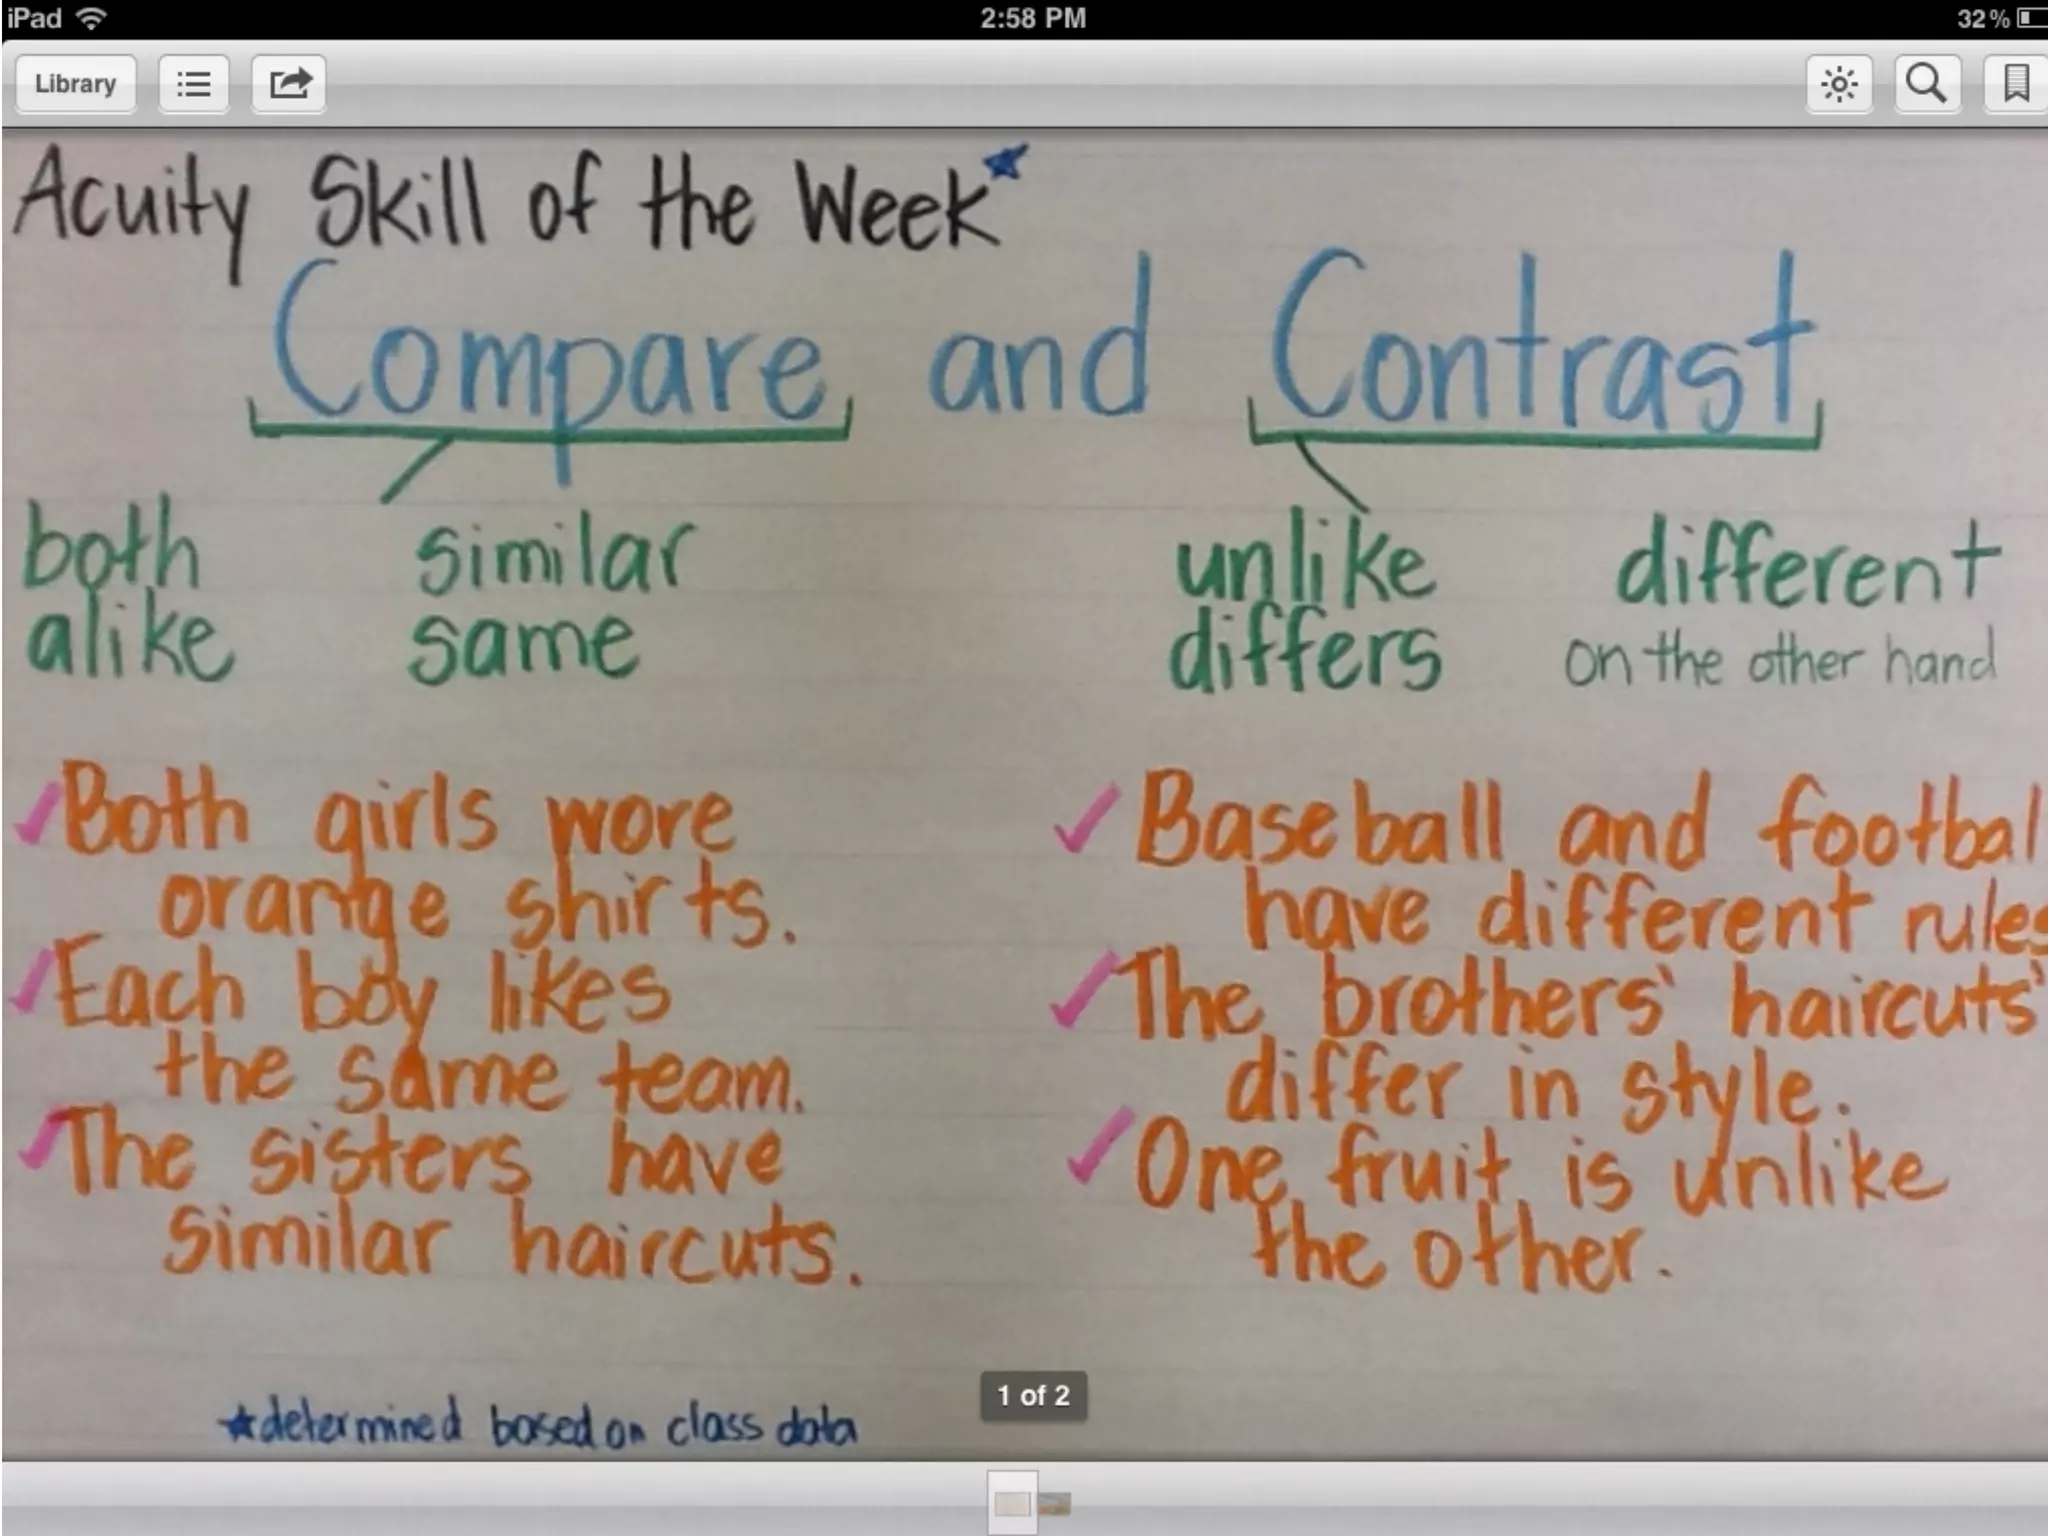 iPad
2:58 PM
32%
Library
Acuity Skill of the Week
Compare and Contrast
both similar
alike same
unlike different
differs on the other hand
Both girls wore
orange shirts.
Each boy likes
the same team.
The sisters have
similar haircuts.
Baseball and footbal
have different rules
The brothers' haircuts'
differ in style.
One fruit is unlike
the other.
1 of 2
★determined based on class data